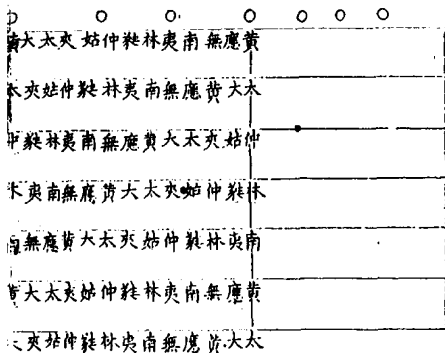 黄大太夾姑仲蕤林夷南無應黄
太夾姑仲蕤林夷南無應黄大太
仲蕤林夷南無應黄大太夾姑仲
林夷南無應黄大太夾姑仲蕤林
南無應黄大太夾姑仲蕤林夷南
黄大太夾姑仲蕤林夷南無應黄
太夾姑仲蕤林夷南無應黄大太